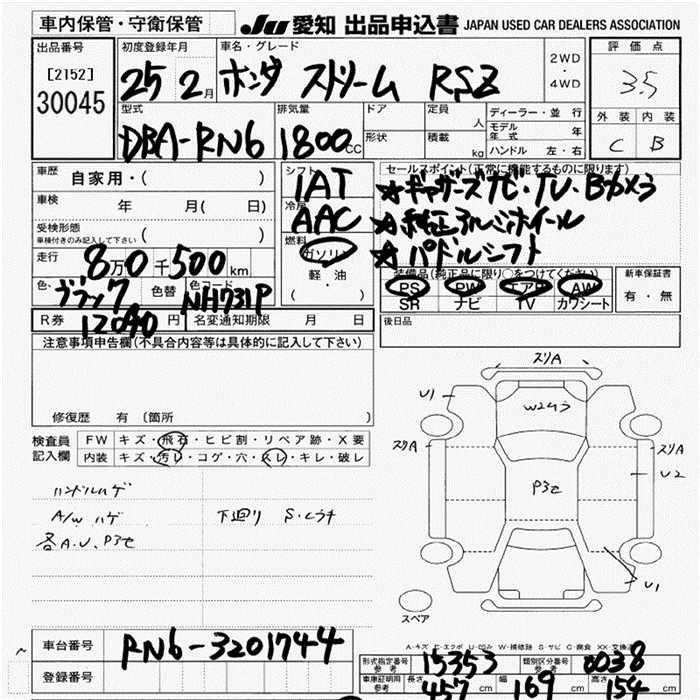 車内保管・守衛保管
JU 愛知 出品申込書 JAPAN USED CAR DEALERS ASSOCIATION
出品番号
[2152]
30045
初度登録年月
25 2月
車名・グレード
ホンダ ストリーム RSZ
2WD
・
4WD
評価点
3.5
外装 内装
C B
型式
DBA-RN6
排気量
1800cc
ドア
形状
定員 人
積載 kg
ディーラー・並行
モデル年式 年
ハンドル 左・右
車歴
自家用・( )
車検 年 月( 日)
受検形態
車検付きのみ記入して下さい ( )
走行
8万0千500km
色
ブラック
色替
色コード
NH731P
R券 12090 円
名変通知期限 月 日
シフト
IAT
冷房
AAC
燃料
ガソリン
軽・油
( )
セールスポイント(正常に機能するものに限ります)
☆ギャザーズナビ・TV・Bカメラ
☆純正アルミホイール
☆パドルシフト
装備品(純正品に限り○をつけてください)
PS PW エアB AW
SR ナビ TV カワシート
新車保証書
有・無
後日品
注意事項申告欄(不具合内容等は具体的に記入して下さい)
修復歴 有 〔箇所
検査員
記入欄
FW キズ・飛石・ヒビ割・リペア跡・X要
内装 キズ・汚レ・コゲ・穴・スレ・キレ・破レ
ハンドルハゲ
A/W ハゲ
各A.U、P3セ
下廻り S・Lウチ
スリA
U1
W2ムラ
スリA
スリA
U2
P3セ
U1
スペア
A-キズ E-エクボ U-凹み W-補修跡 S-サビ C-腐食 XX-交換済
車台番号
RN6-3201744
登録番号
形式指定番号
参考
15353
類別区分番号
参考
0038
車庫証明用
参考
長さ 457 cm
幅 169 cm
高さ 154 cm